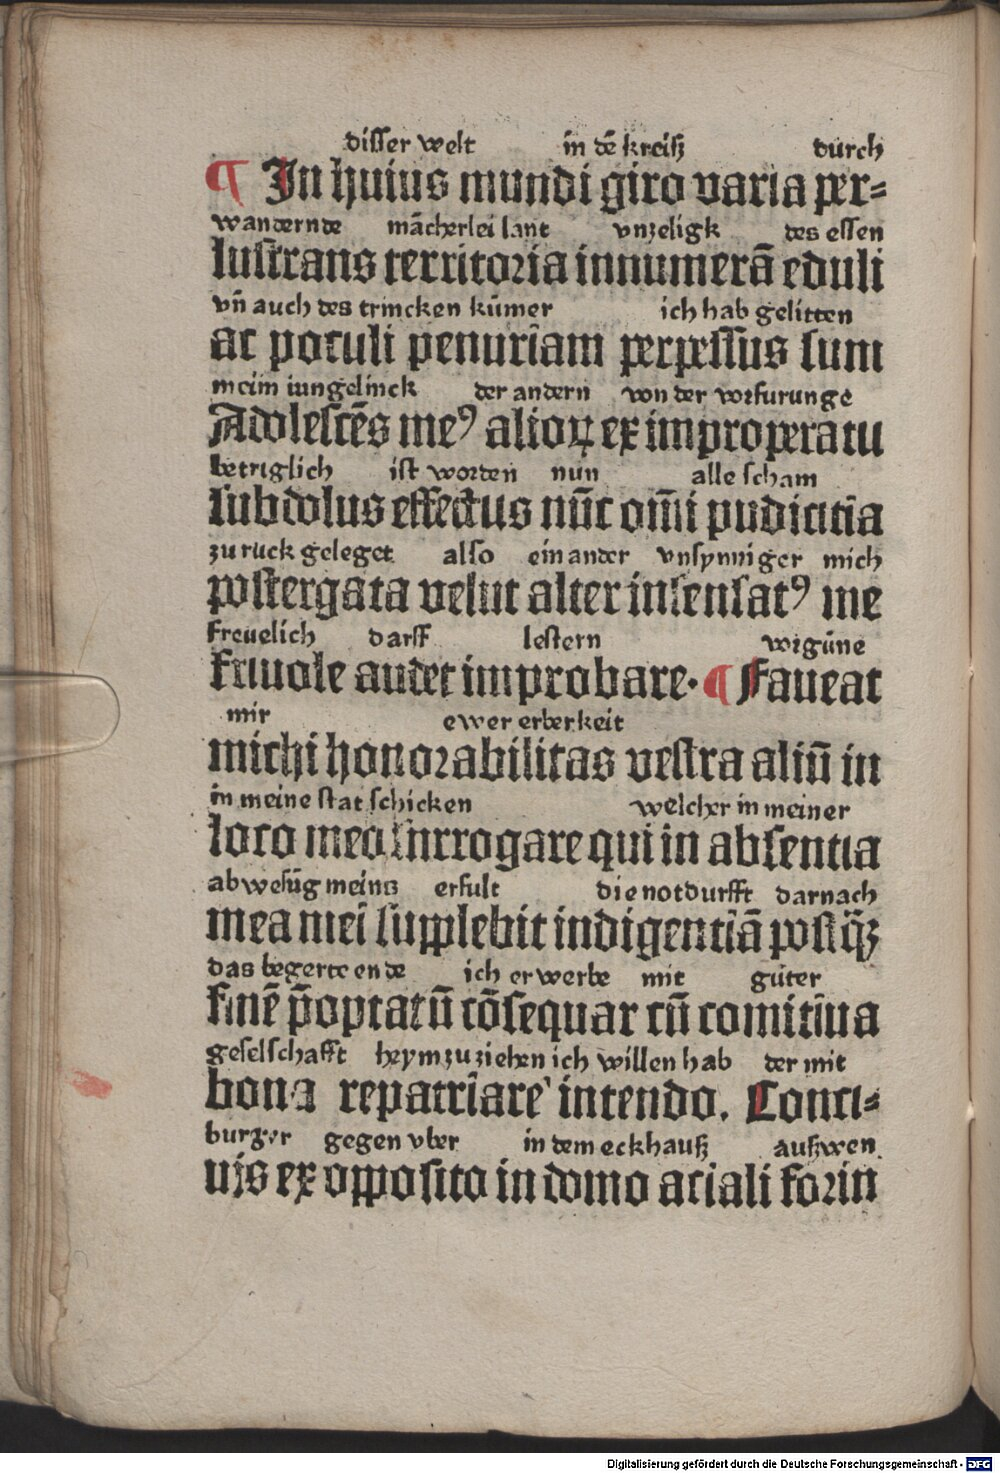 disser welt in dē kreiß durch
¶ In huius mundi giro varia per-
wandernde mācherlei lant vnzeligk des essen
lustrans territoria innumerā eduli
vn̄ auch des trincken kūmer ich hab gelitten
ac poculi penuriam perpessus sum
meim iungelinck der andern von der vorfurunge
Adolescēs meꝰ alioꝝ ex improperatu
betriglich ist worden nun alle scham
subdolus effectus nūc om̄i pudicitia
zu ruck geleget also ein ander vnsynniger mich
postergata velut alter insensatꝰ me
freuelich darff lestern
friuole audet improbare. ¶ Faueat
vorgūne
mir ewer erberkeit
michi honorabilitas vestra aliū in
in meine stat schicken welcher in meiner
loco meo surrogare qui in absentia
abwesūg meins erfult die notdurfft darnach
mea mei supplebit indigentiā postq̄ꝫ
das begerte ende ich erwerbe mit guter
finē p̄optatū cōsequar cū comitiua
geselschafft heym zu ziehen ich willen hab der mit
bona repatriare intendo. Conci-
burger gegen vber in dem eckhauß außwen
uis ex opposito in domo aciali forin
Digitalisierung gefördert durch die Deutsche Forschungsgemeinschaft - DFG